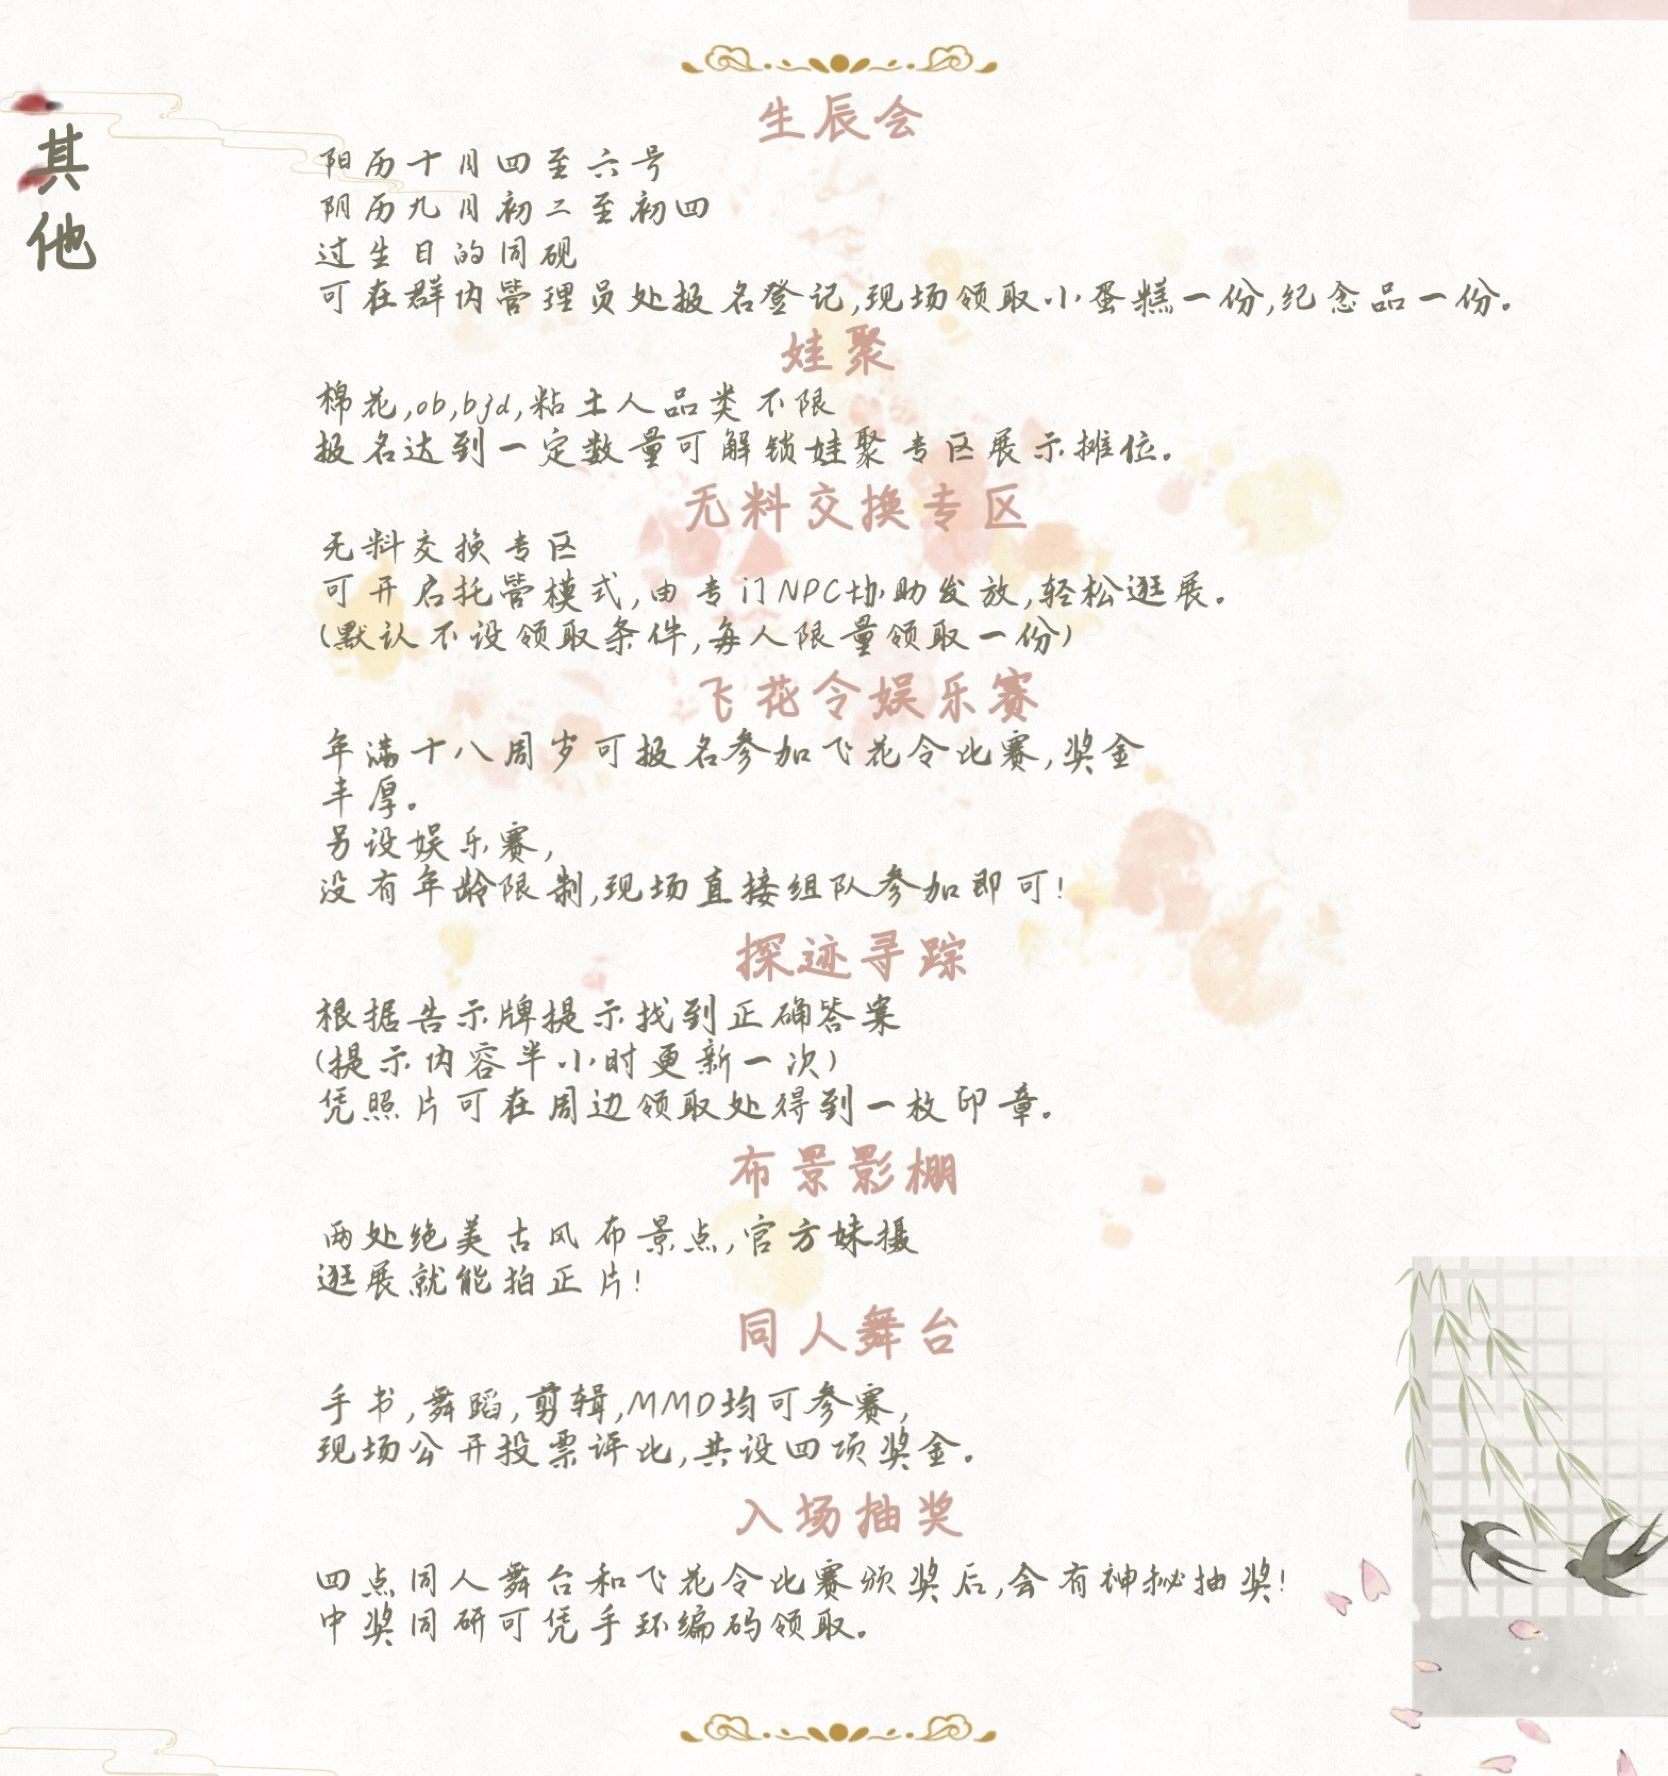 其他
生辰会
阳历十月四至六号
阴历九月初二至初四
过生日的同砚
可在群内管理员处报名登记,现场领取小蛋糕一份,纪念品一份。
娃聚
棉花,ob,bjd,粘土人品类不限
报名达到一定数量可解锁娃聚专区展示摊位。
无料交换专区
无料交换专区
可开启托管模式,由专门NPC协助发放,轻松逛展。
(默认不设领取条件,每人限量领取一份)
飞花令娱乐赛
年满十八周岁可报名参加飞花令比赛,奖金
丰厚。
另设娱乐赛,
没有年龄限制,现场直接组队参加即可!
探迹寻踪
根据告示牌提示找到正确答案
(提示内容半小时更新一次)
凭照片可在周边领取处得到一枚印章。
布景影棚
两处绝美古风布景点,官方妹摄
逛展就能拍正片!
同人舞台
手书,舞蹈,剪辑,MMD均可参赛,
现场公开投票评比,共设四项奖金。
入场抽奖
四点同人舞台和飞花令比赛颁奖后,会有神秘抽奖!
中奖同研可凭手环编码领取。